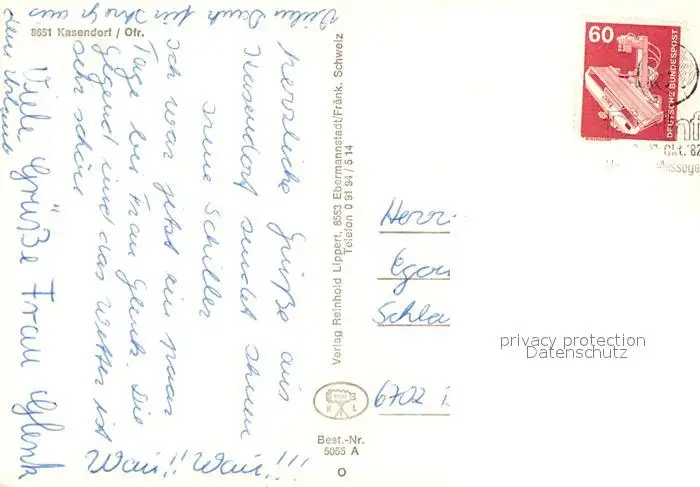 8651 Kasendorf / Ofr.
Vielen Dank für Ihre aus
dem Urlaub
Herzliche Grüße aus
Kasendorf sendet Ihnen
Irene Schiller
Ich war jetzt ein paar
Tage bei Frau Glenk. Die
Gegend und das Wetter ist
sehr schön
Viele Grüße Frau Glenk
Wau!! Wau!!!
Verlag Reinhold Lippert, 8553 Ebermannstadt/Fränk. Schweiz
Telefon 0 91 94 / 5 14
R L
Best.-Nr.
5055 A
60
DEUTSCHE BUNDESPOST
Okt.'82
Messege
Herrn
Egon
Schla
6702
privacy protection
Datenschutz